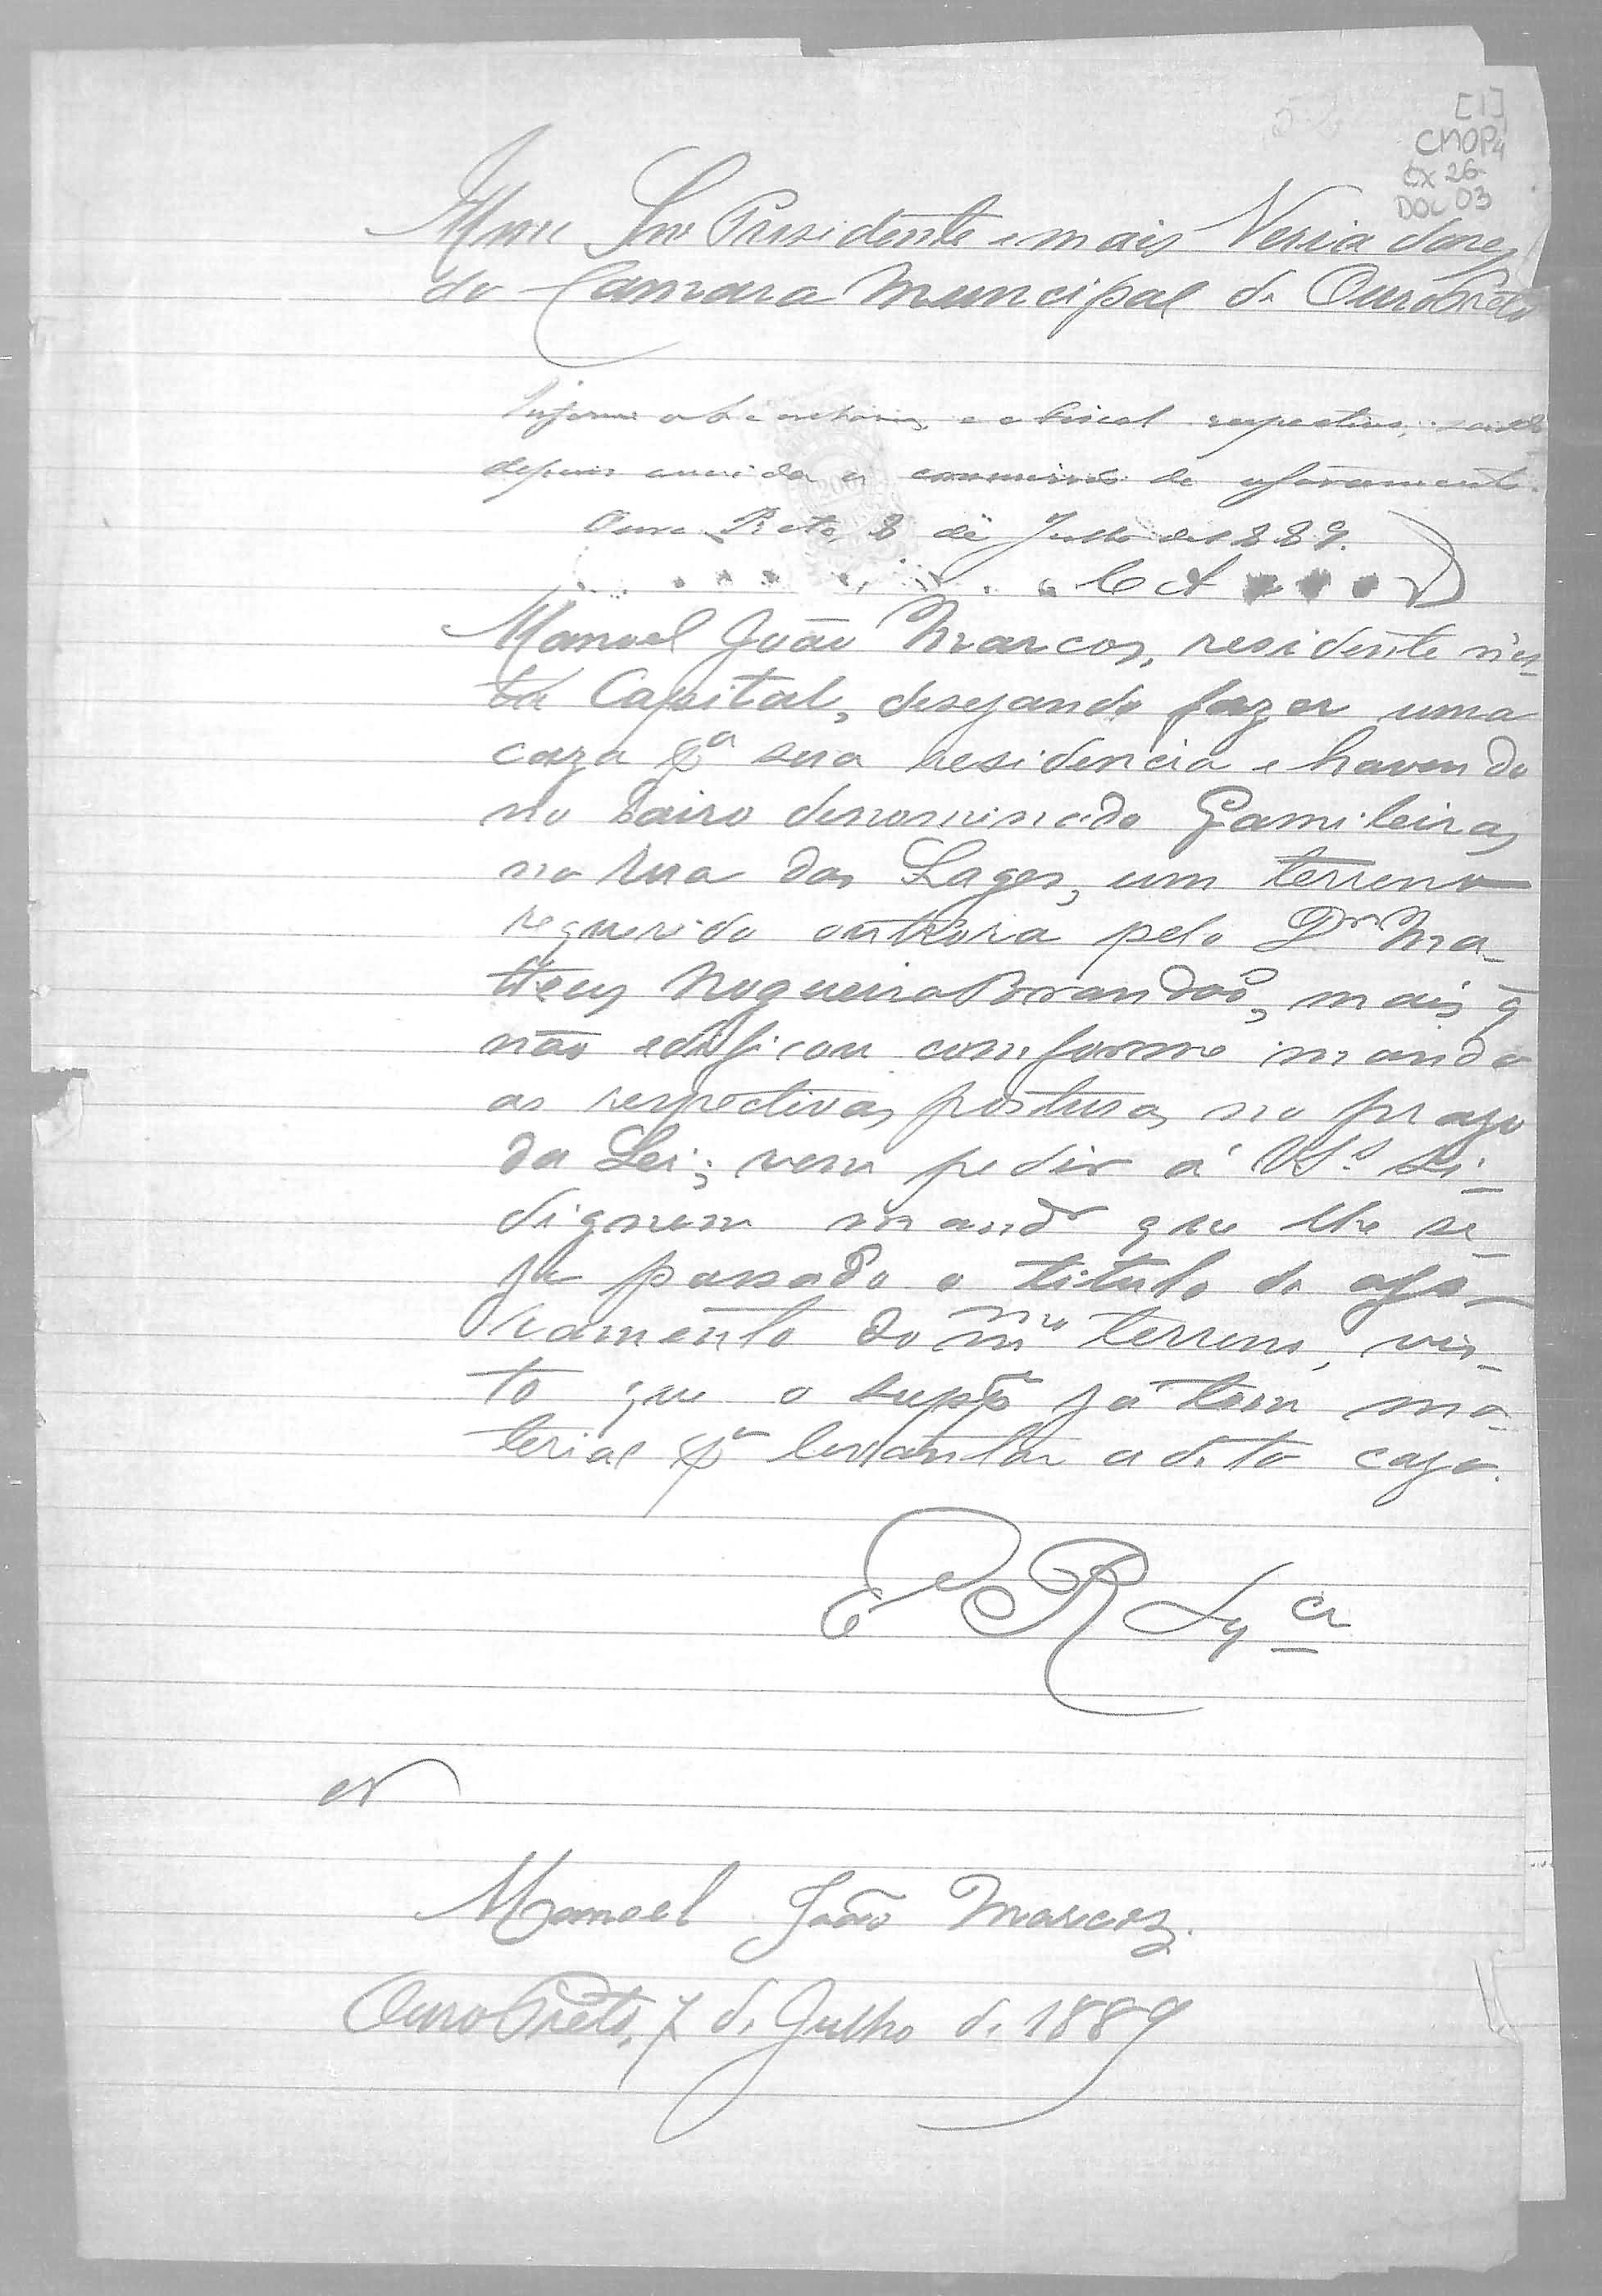 [1]
CMOP4
CX 26
DOC 03
Illmo Snr Presidente e mais Veriadores
da Camara Muncipal de Ouro Preto
Informe o e o Fiscal respectivo,
depois ouvida a commissão de aforamento.
Ouro Preto, 8 de Julho de 1889.
Manoel João Marcos, residente n'es-
ta Capital, desejando fazer uma
caza pª sua residencia e havendo
no bairo denominado Gamileira,
na rua das Lages, um terreno
requerido outhora pelo Dr Ma-
theus Nogueira Brandão, mais q
não edificou comforme manda
as respectivas posturas no prazo
da Lei; vem pedir á VSas Se
dignem mandr que lhe se-
ja passado o titulo de afo-
ramento do mmo terreno, vis-
to que o suppe já tem ma-
terial pª levantar a dita caza.
E R Mça
Manoel João Marcos.
Ouro Preto, 7 de Julho de 1889